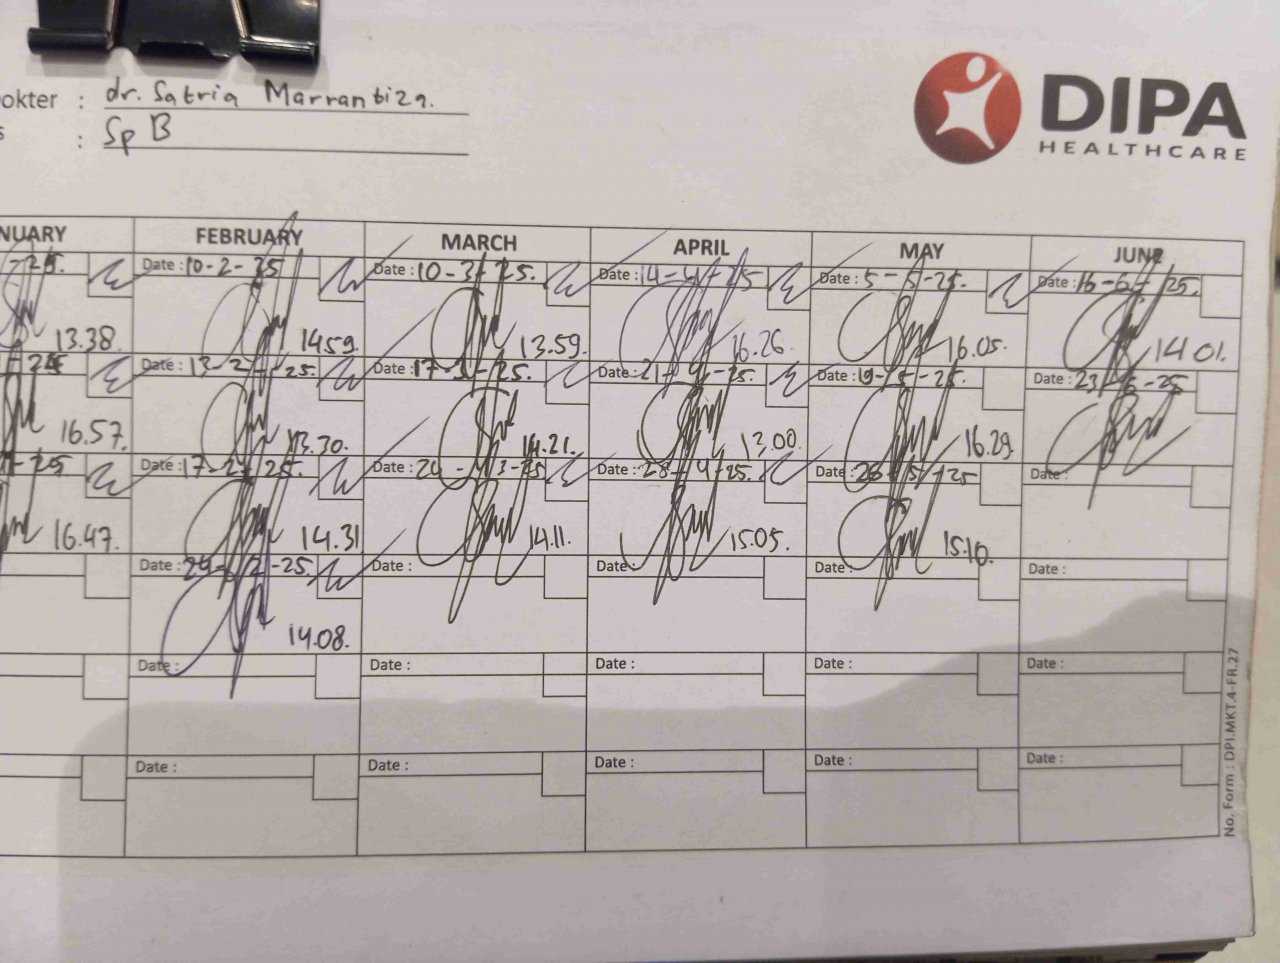 okter : dr. Satria Marrantiza.
s : Sp B
DIPA
HEALTHCARE
NUARY FEBRUARY MARCH APRIL MAY JUNE
-25. Date : 10-2-25 Date : 10-3-25. Date : 14-4-25 Date : 5-5-25. Date : 16-6-25.
13.38 14.59. 13.59. 16.26. 16.05. 14.01.
-25 Date : 13-2-25. Date : 17-3-25. Date : 21-4-25. Date : 19-5-25. Date : 23-6-25
16.57. 13.30. 14.21. 13.00. 16.29.
-25 Date : 17-2-25. Date : 24-3-25 Date : 28-4-25. Date : 26-5-25 Date :
16.47. 14.31 14.11. 15.05. 15.10.
Date : 24-2-25. Date : Date : Date : Date :
14.08.
Date : Date : Date : Date : Date :
Date : Date : Date : Date : Date :
No. Form : DPI.MKT.4-FR.27